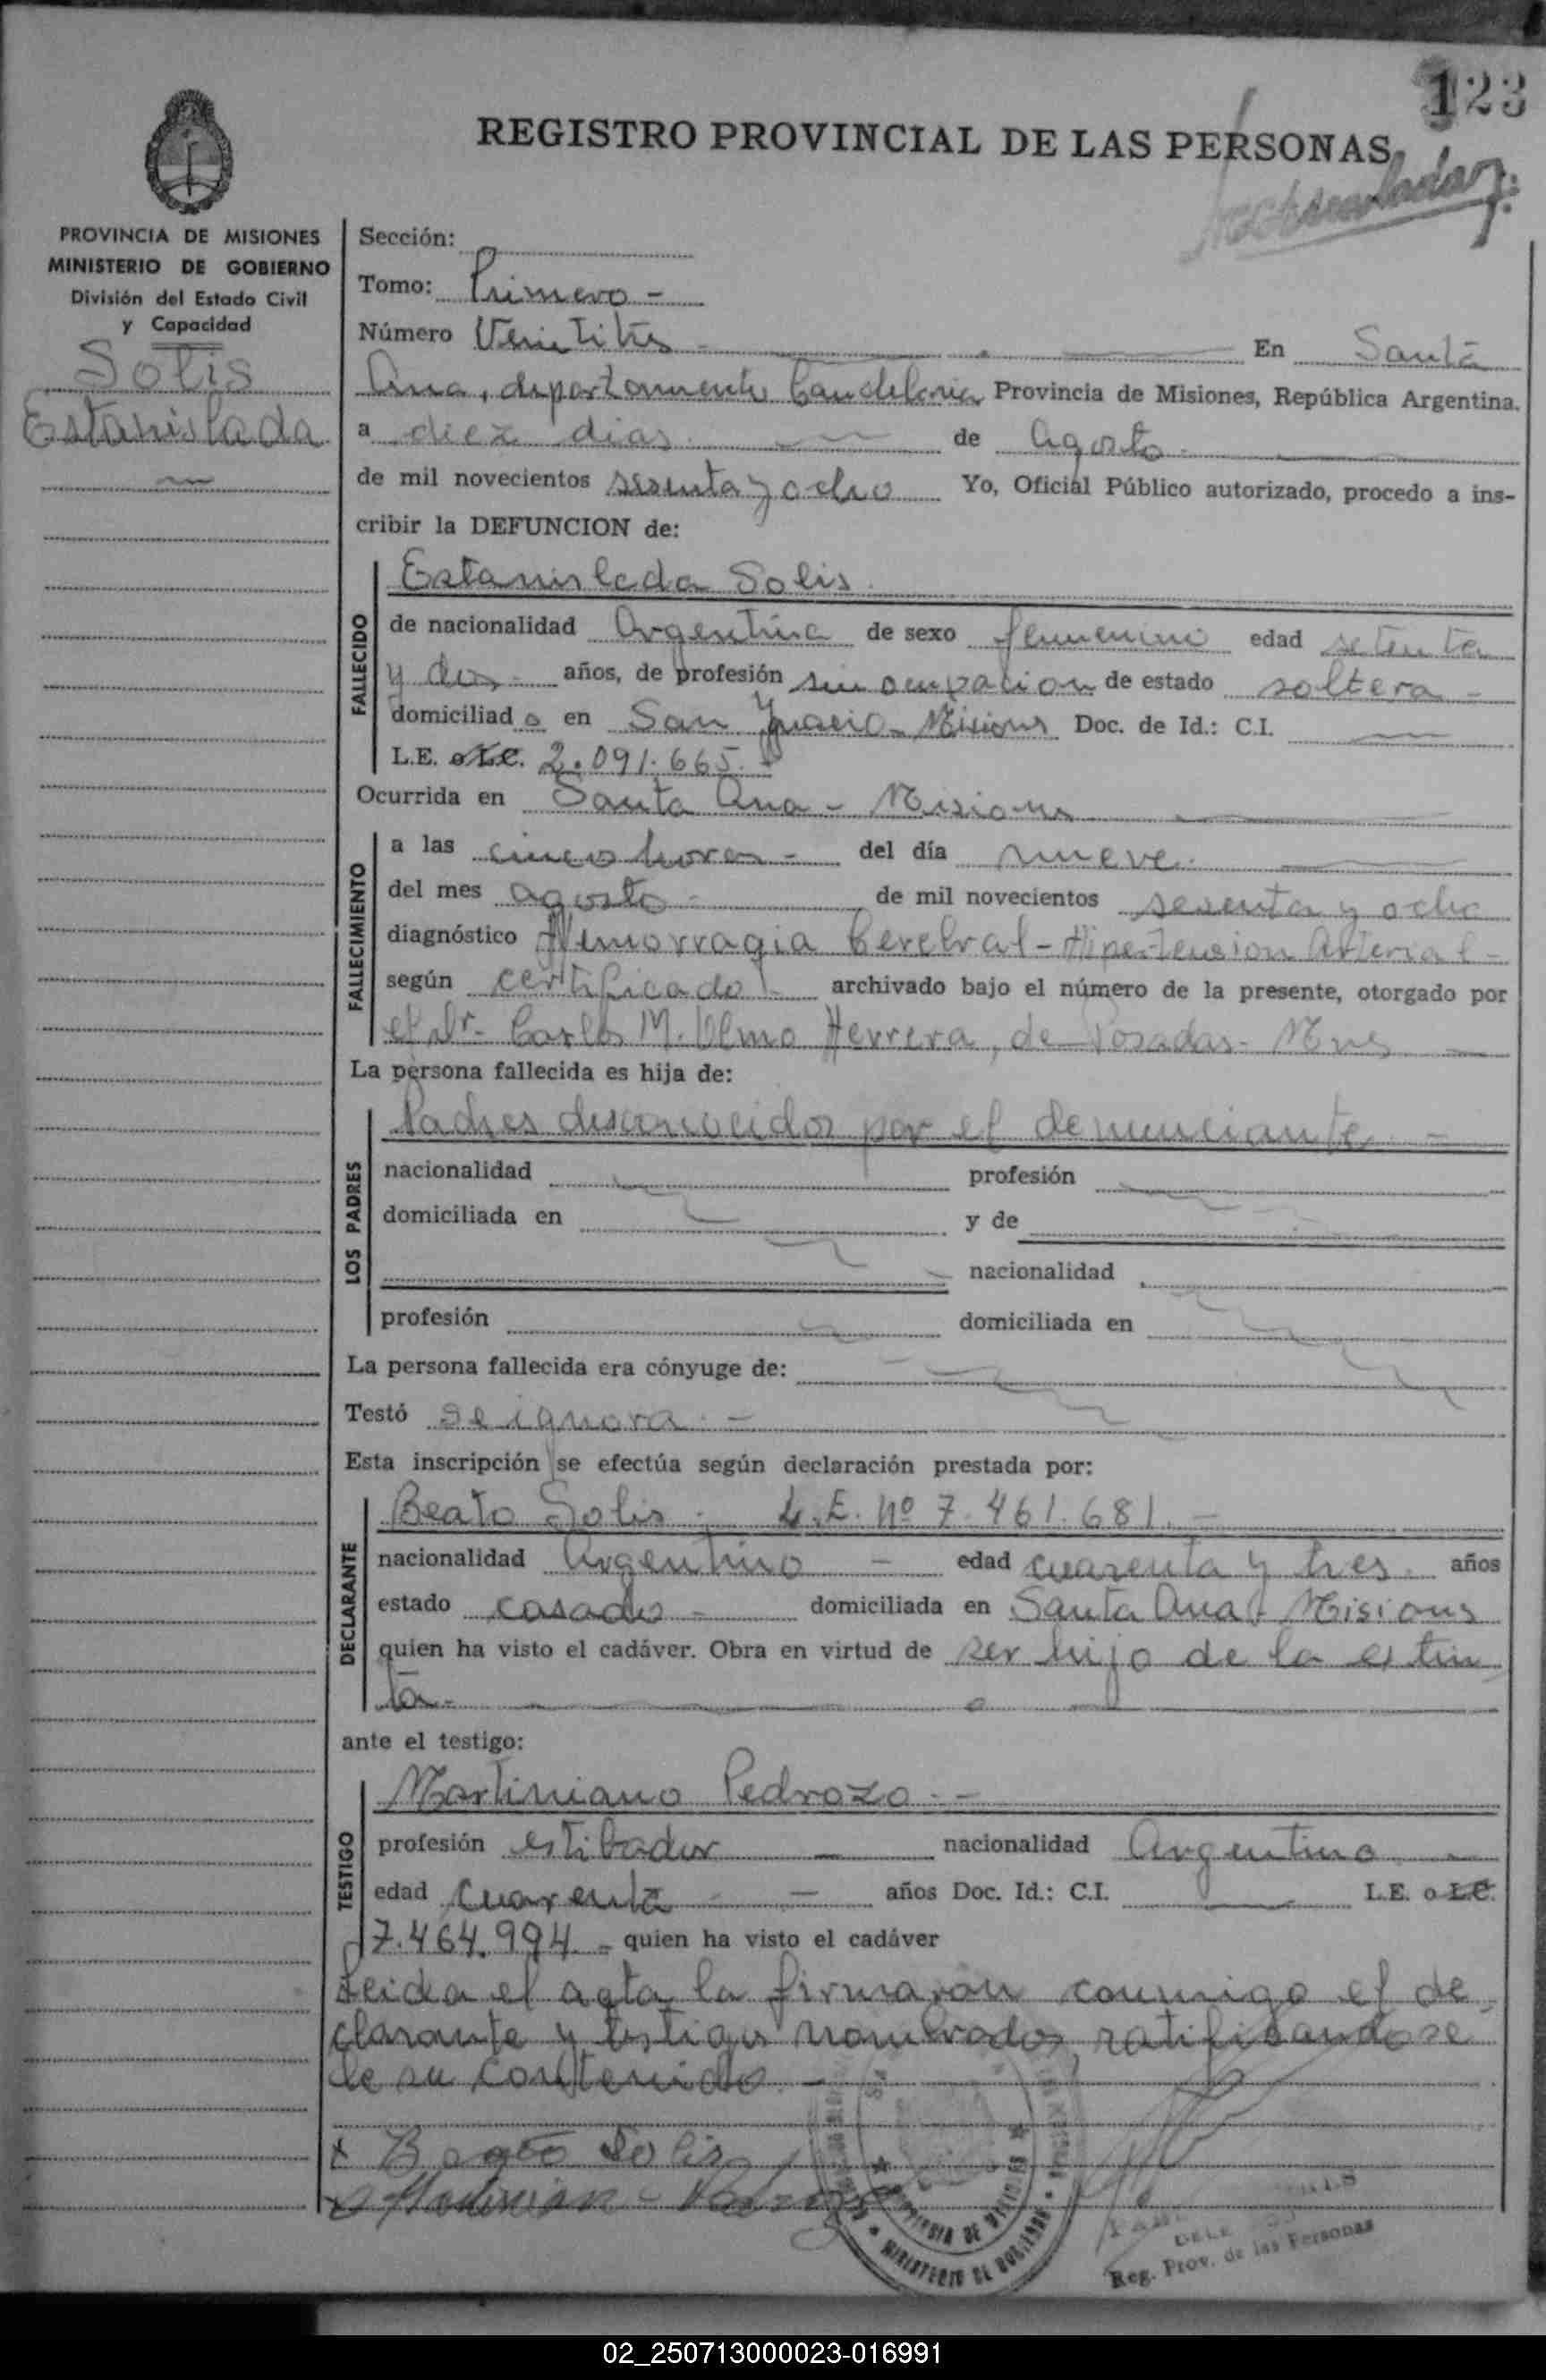 123
REGISTRO PROVINCIAL DE LAS PERSONAS
PROVINCIA DE MISIONES
MINISTERIO DE GOBIERNO
División del Estado Civil
y Capacidad
Solis
Estanislada
Sección:
Tomo: Primero -
Número Veintitres - En Santa
Ana, departamento Candelaria Provincia de Misiones, República Argentina.
a diez dias de Agosto -
de mil novecientos sesenta y ocho Yo, Oficial Público autorizado, procedo a ins-
cribir la DEFUNCION de:
FALLECIDO
Estanislada Solis
de nacionalidad Argentina de sexo femenino edad setenta
y dos - años, de profesión sin ocupacion de estado soltera -
domiciliada en San Ygnacio - Misiones Doc. de Id.: C.I.
L.E. o L.C. 2.091.665. -
Ocurrida en Santa Ana - Misiones
FALLECIMIENTO
a las cinco horas - del día nueve -
del mes agosto - de mil novecientos sesenta y ocho
diagnóstico Hemorragia Cerebral - Hipertension Arterial -
según certificado - archivado bajo el número de la presente, otorgado por
el Dr. Carlos M. Ulmo Herrera, de Posadas - Mnes
La persona fallecida es hija de:
LOS PADRES
Padres desconocidos por el denunciante. -
nacionalidad profesión
domiciliada en y de
nacionalidad
profesión domiciliada en
La persona fallecida era cónyuge de:
Testó se ignora. -
Esta inscripción se efectúa según declaración prestada por:
DECLARANTE
Beato Solis - L.E. Nº 7.461.681. -
nacionalidad Argentino - edad cuarenta y tres años
estado casado - domiciliada en Santa Ana - Misiones
quien ha visto el cadáver. Obra en virtud de ser hijo de la extin
ta -
ante el testigo:
TESTIGO
Martiniano Pedrozo - -
profesión estibador - nacionalidad Argentino -
edad cuarenta - años Doc. Id.: C.I. L.E. o L.C.
7.464.994 - quien ha visto el cadáver
Leida el acta la firmaron conmigo el de
clarante y testigos nombrados, ratificandose
de su contenido. -
x Beato Solis
MINISTERIO DE GOBIERNO
PROVINCIA DE MISIONES
Reg. Prov. de las Personas
02_250713000023-016991